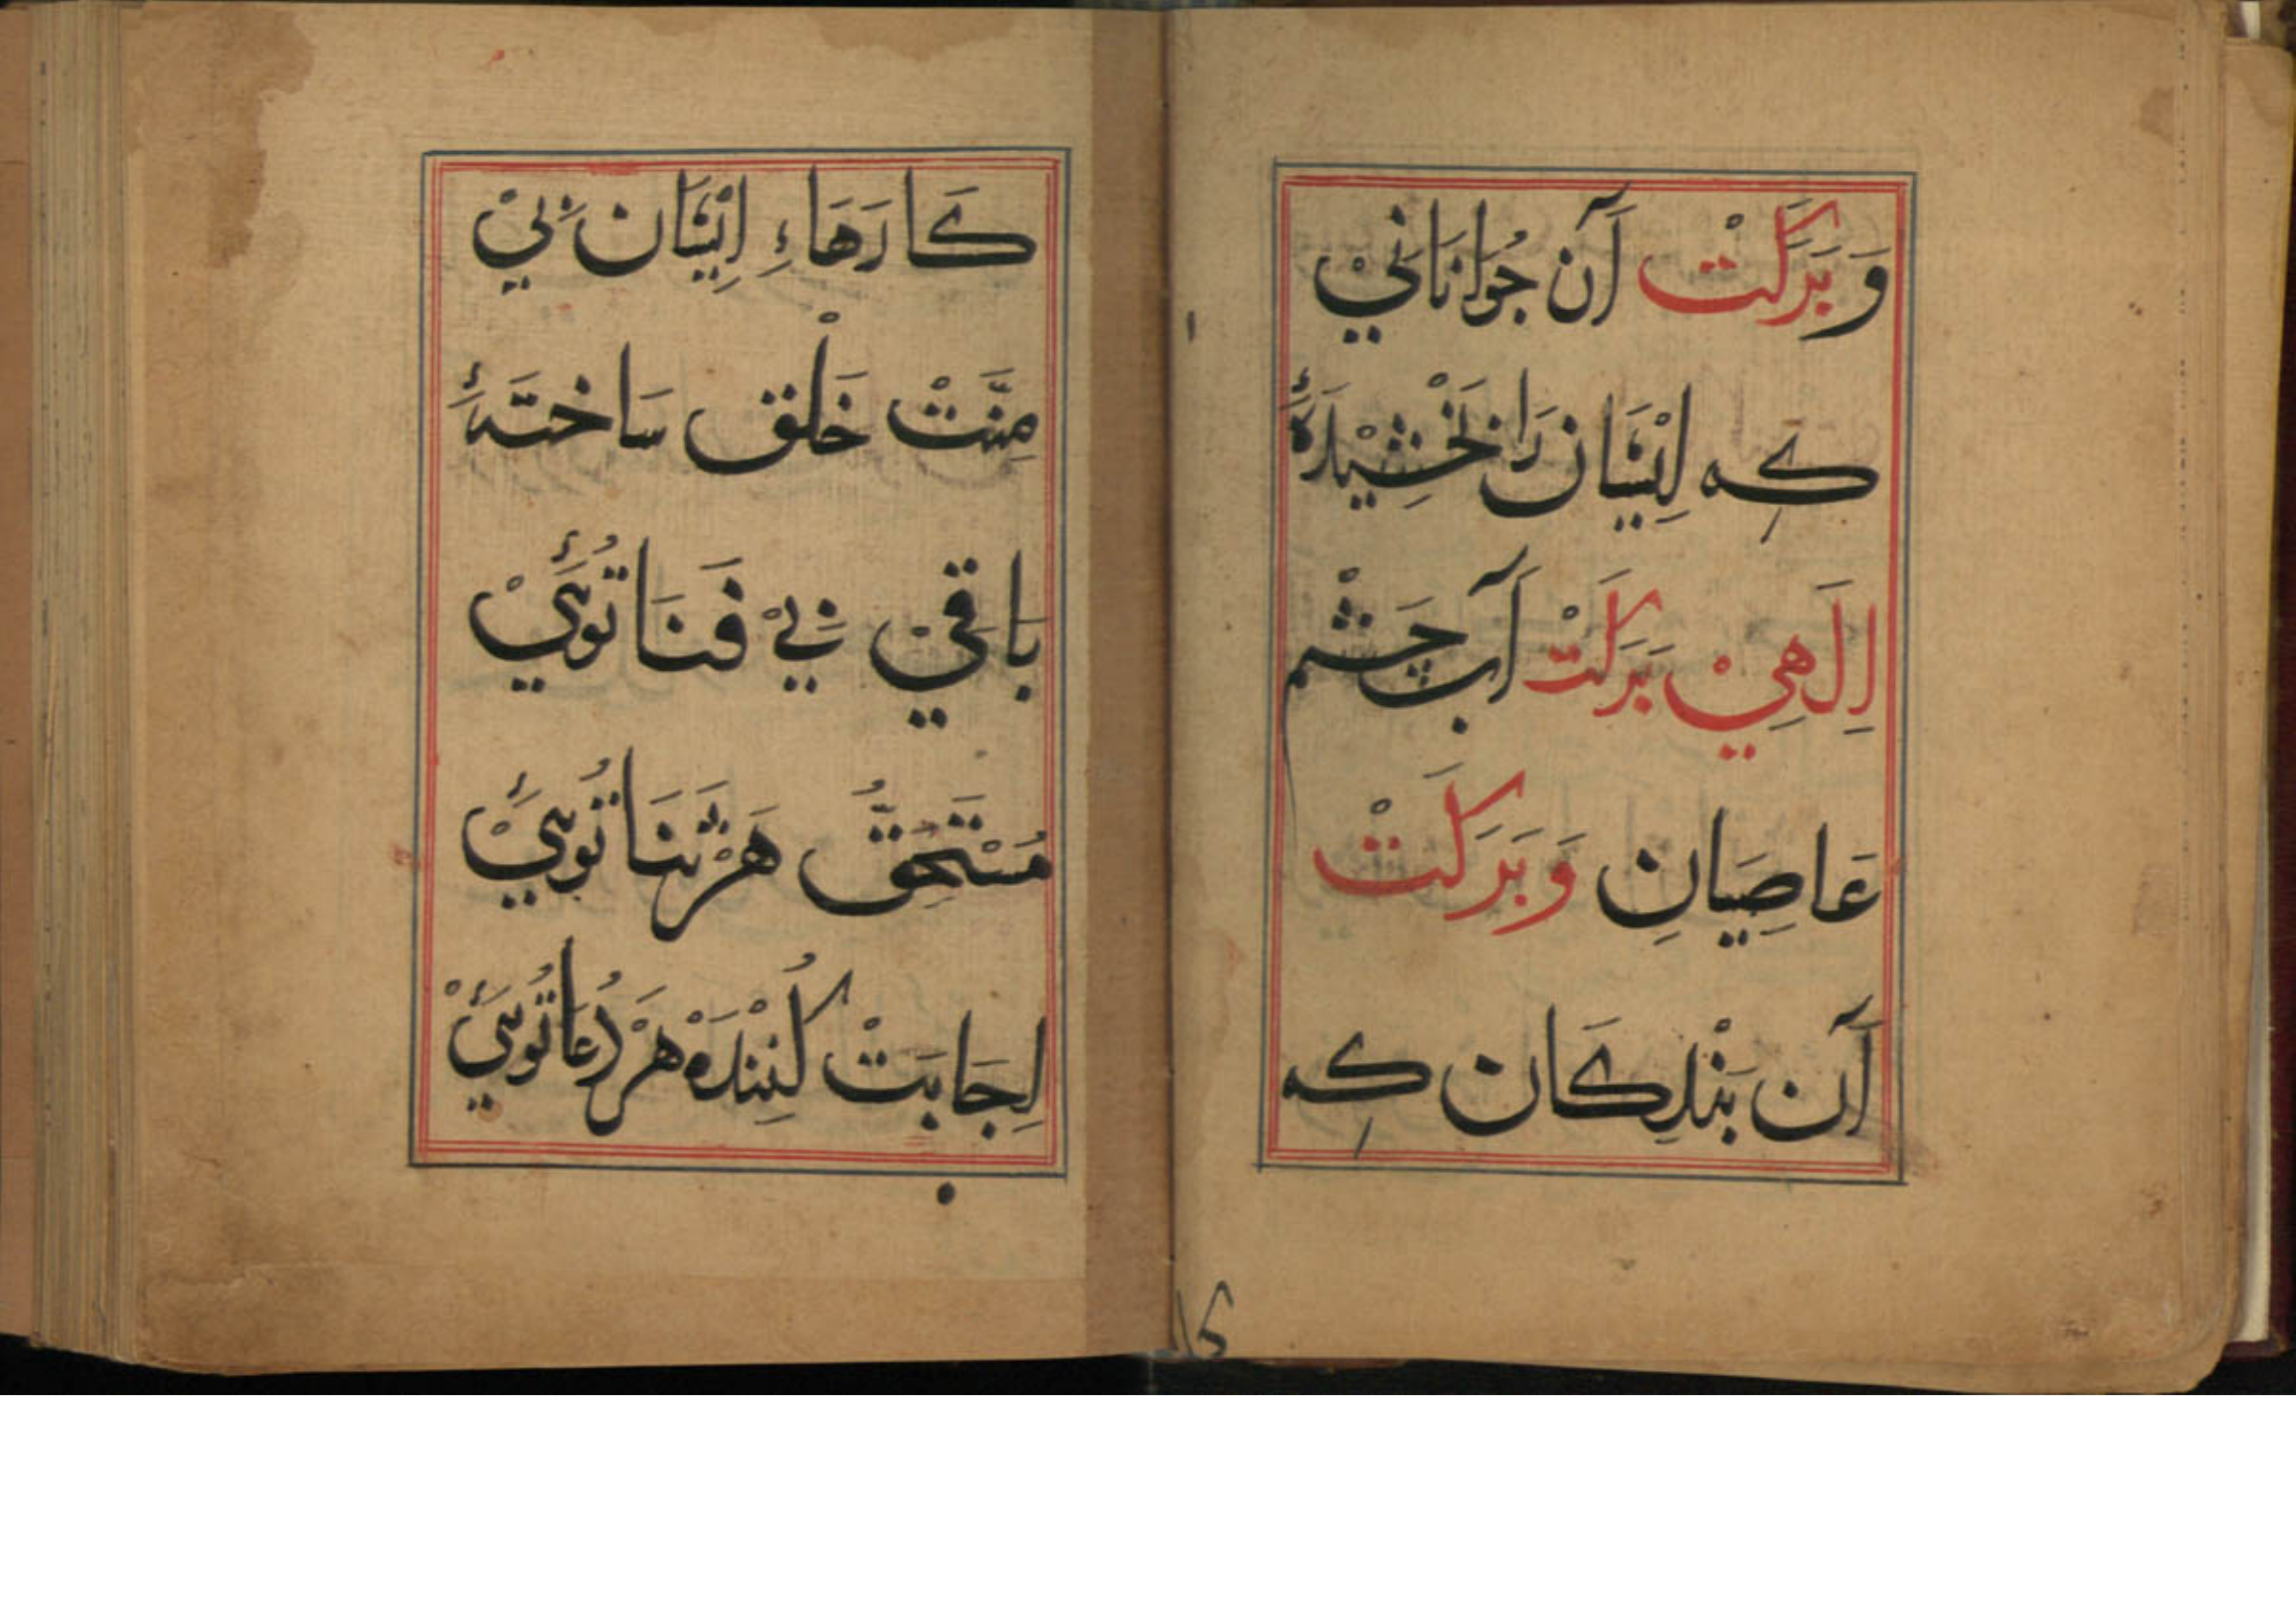 وَ بَرَكَتْ آن جُوَانَانَيْ
كِه اِيْشَان رَا بَخْشِيْدَهٔ
اِلٰهِيْ بَرَكَتْ آبِ چَشْمِ
عَاصِيَانِ وَ بَرَكَتْ
آن بَنْدِكَان كِه
كَارَهَاءِ اِيْشَان بَيْ
مِنَّتْ خَلْق سَاخْتَهٔ
بَاقِيْ بَيْ فَنَا تُوئِيْ
مُسْتَحِقُّ هَرْ ثَنَا تُوئِيْ
اِجَابَتْ كُنِنْدَهْ هَرْ دُعَا تُوئِيْ
۱۵